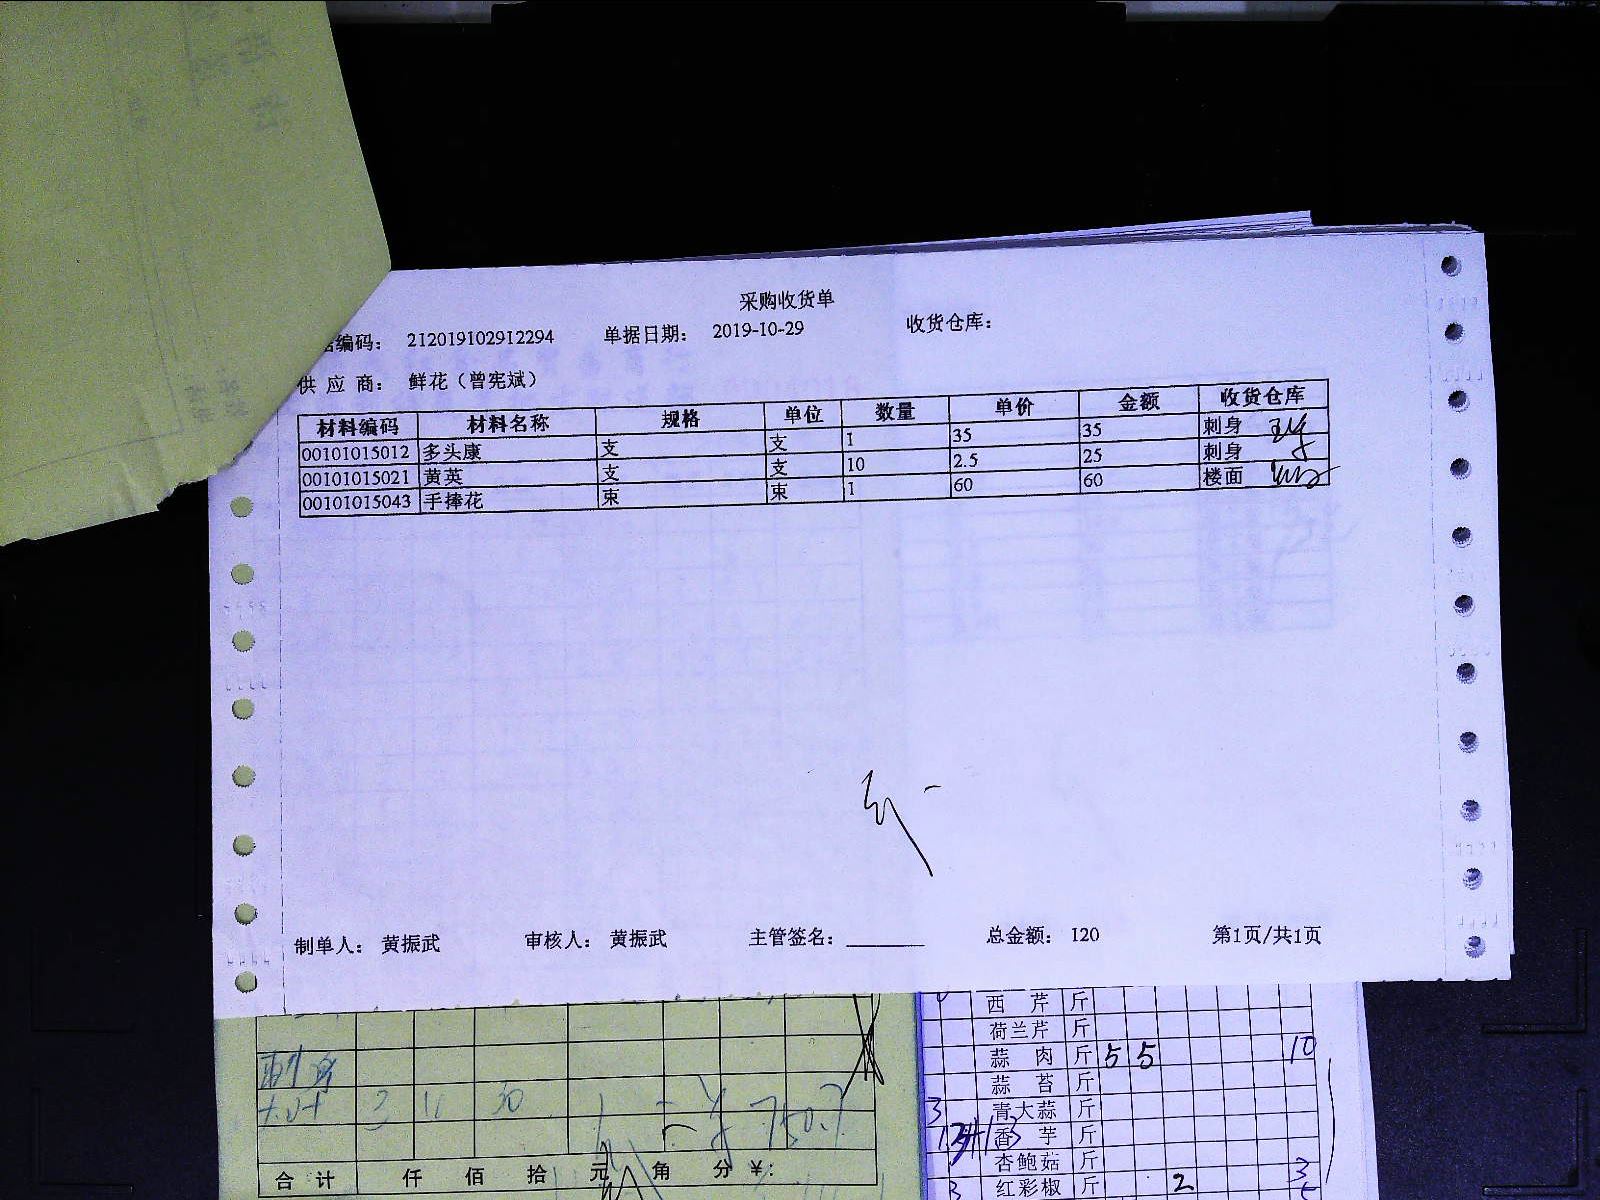 采购收货单
编码: 212019102912294 单据日期: 2019-10-29 收货仓库:
供应商: 鲜花（曾宪斌）
材料编码 材料名称 规格 单位 数量 单价 金额 收货仓库
00101015012 多头康 支 支 1 35 35 刺身
00101015021 黄英 支 支 10 2.5 25 刺身
00101015043 手捧花 束 束 1 60 60 楼面
制单人: 黄振武 审核人: 黄振武 主管签名: 总金额: 120 第1页/共1页
西芹 斤
荷兰芹 斤
蒜肉 斤 5 5 10
蒜苔 斤
3 青大蒜 斤
香芋 斤
杏鲍菇 斤
3 红彩椒 斤 2 3
刺身
3 11 30
合计 仟 佰 拾 元 角 分 ¥: